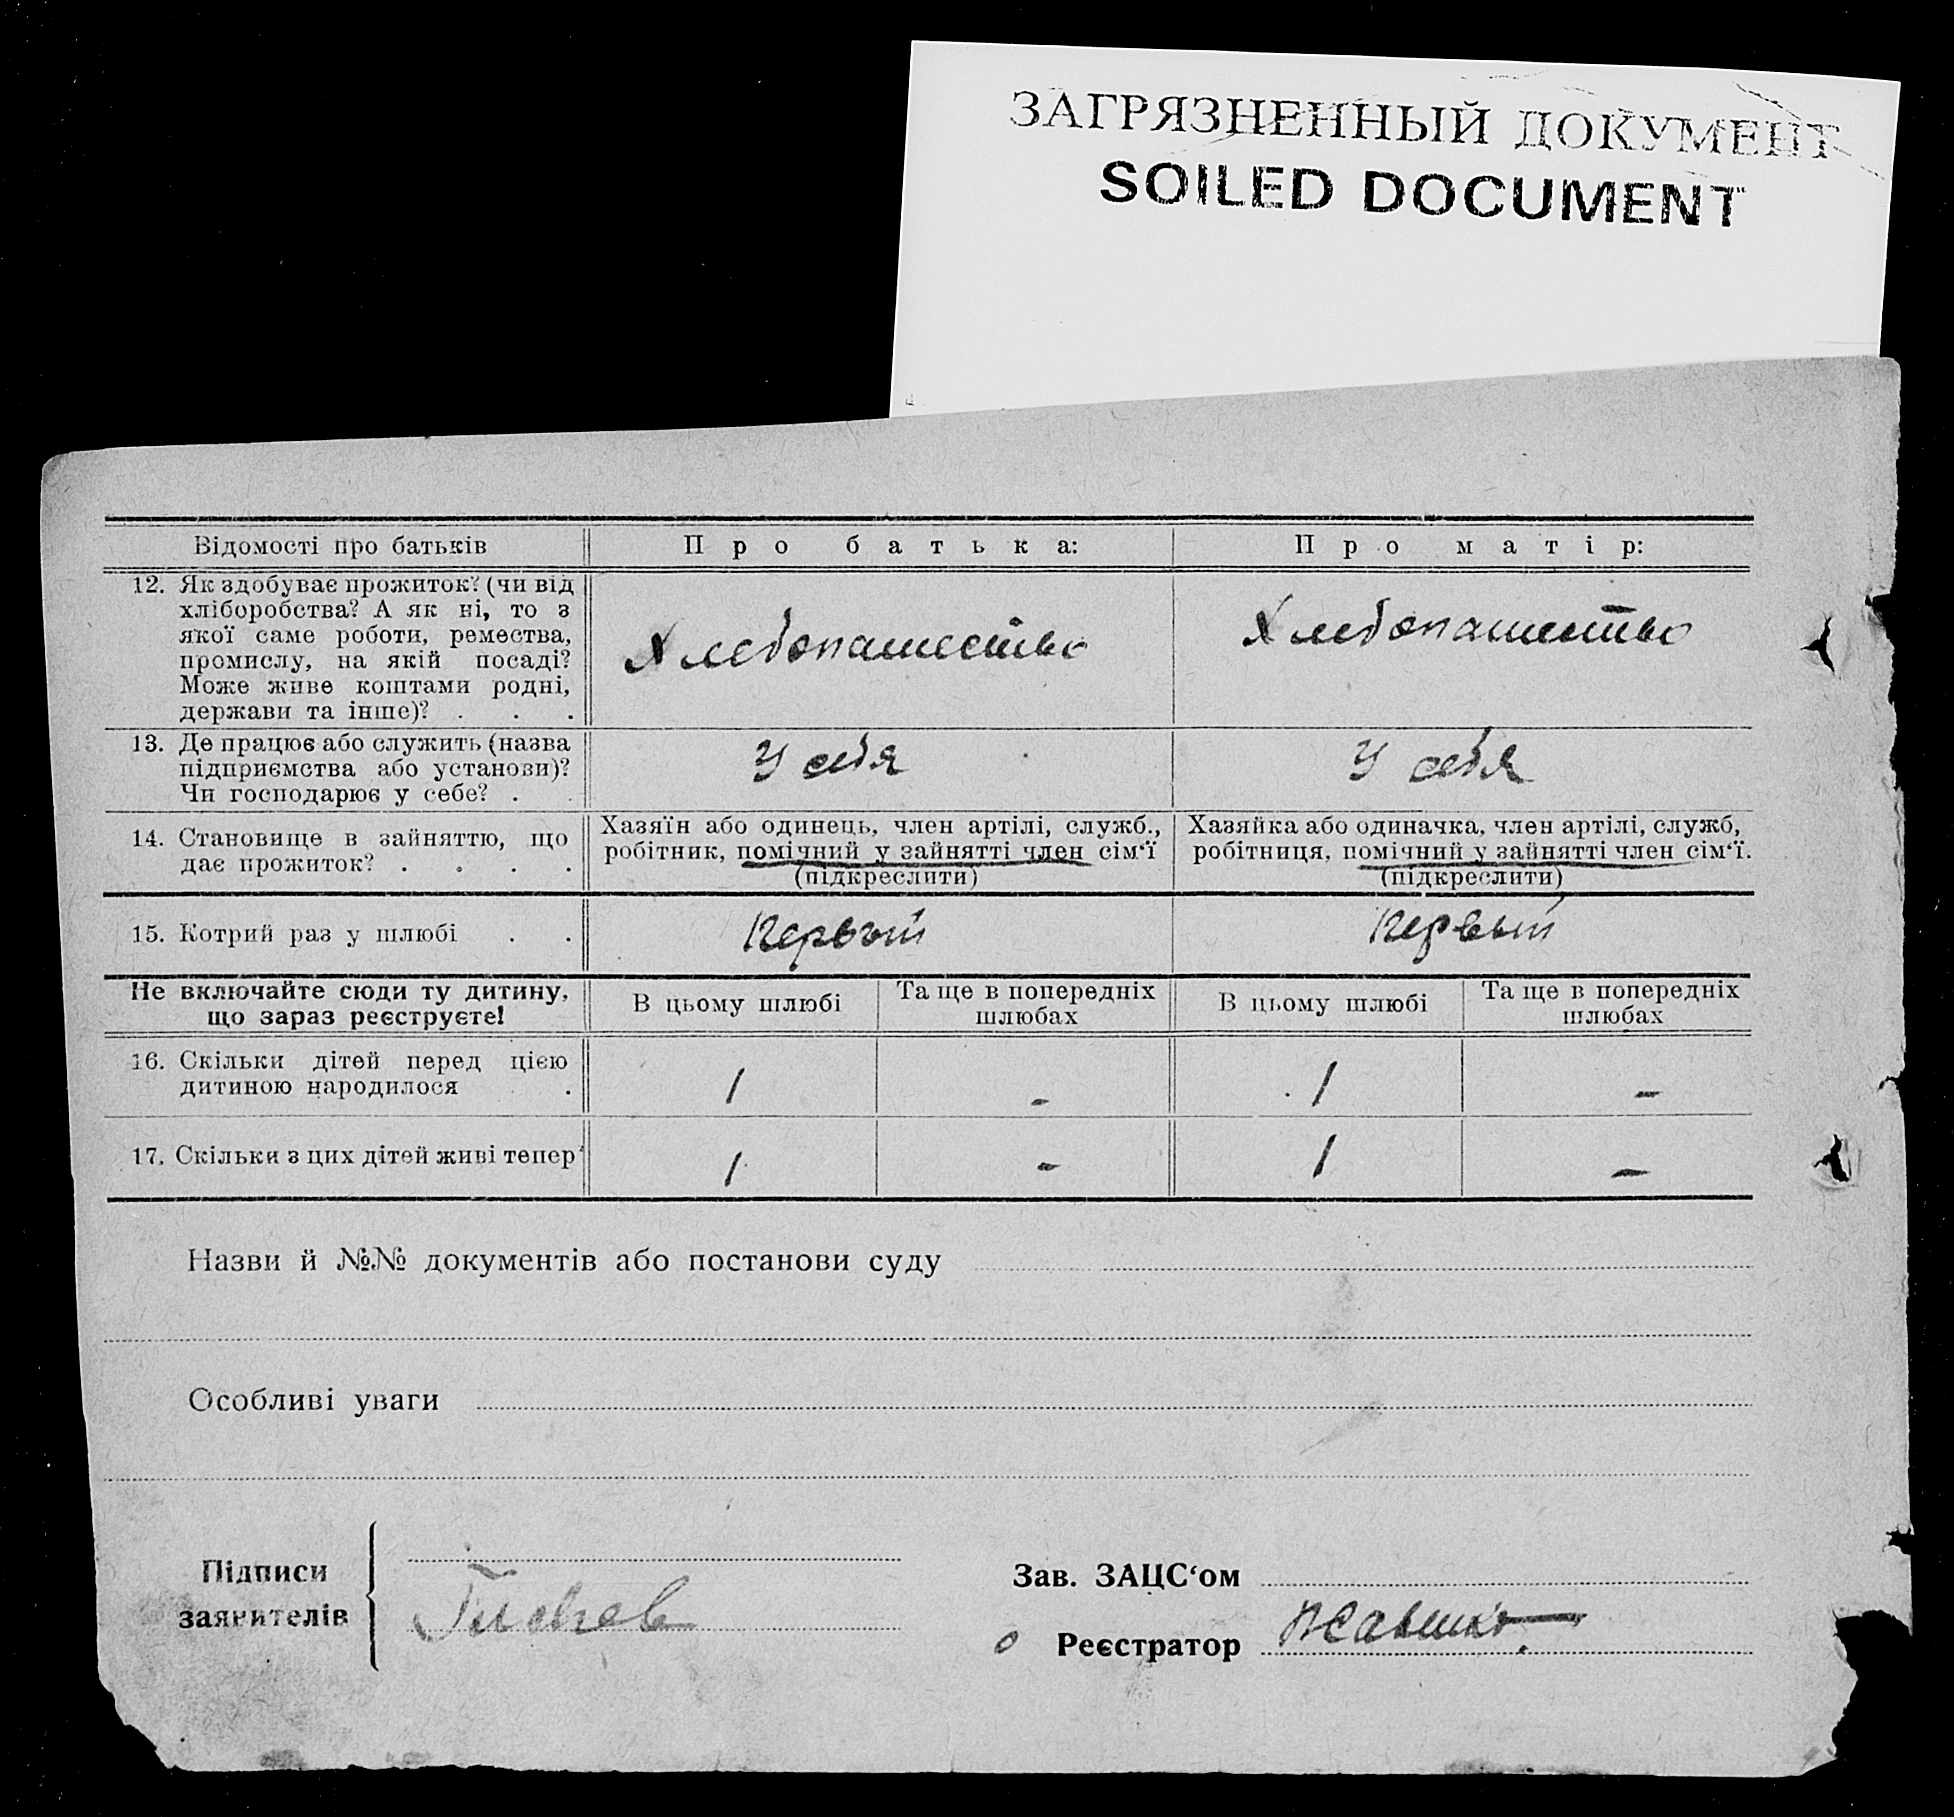 ЗАГРЯЗНЕННЫЙ ДОКУМЕНТ
SOILED DOCUMENT
Відомості про батьків
Про батька:
Про матір:
12. Як здобуває прожиток? (чи від
хліборобства? А як ні, то з
якої саме роботи, ремества,
промислу, на якій посаді?
Може живе коштами родні,
держави та інше)? . . .
Хлебопашество
Хлебопашество
13. Де працює або служить (назва
підприємства або установи)?
Чи господарює у себе? .
У себя
У себя
14. Становище в зайняттю, що
дає прожиток? . . . .
Хазяїн або одинець, член артілі, служб.,
робітник, помічний у зайнятті член сім‘ї
(підкреслити)
Хазяйка або одиначка, член артілі, служб,
робітниця, помічний у зайнятті член сім‘ї.
(підкреслити)
15. Котрий раз у шлюбі . .
Первый
Первый
Не включайте сюди ту дитину,
що зараз реєструєте!
В цьому шлюбі
Та ще в попередніх
шлюбах
В цьому шлюбі
Та ще в попередніх
шлюбах
16. Скільки дітей перед цією
дитиною народилося .
1
-
1
-
17. Скільки з цих дітей живі тепер
1
-
1
-
Назви й №№ документів або постанови суду
Особливі уваги
Підписи
заявителів
Зав. ЗАЦС‘ом
Реєстратор